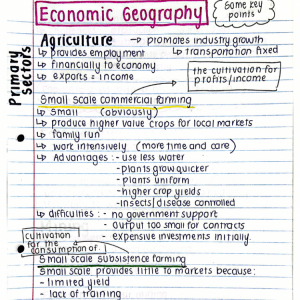 Some key points
Economic Geography
Primary Sectors
Agriculture → promotes industry growth
↳ provides employment ↳ transportation fixed
↳ financially to economy
↳ exports = income
the cultivation for profits/income
Small scale commercial farming
↳ small (obviously)
↳ produce higher value crops for local markets
↳ family run
↳ work intensively (more time and care)
↳ Advantages: - use less water
- plants grow quicker
- plants uniform
- higher crop yields
- insects/disease controlled
↳ difficulties: - no government support
- output too small for contracts
- expensive investments initially.
cultivation for the consumption of.
Small scale subsistence farming
Small scale provides little to markets because:
- limited yield
- lack of training